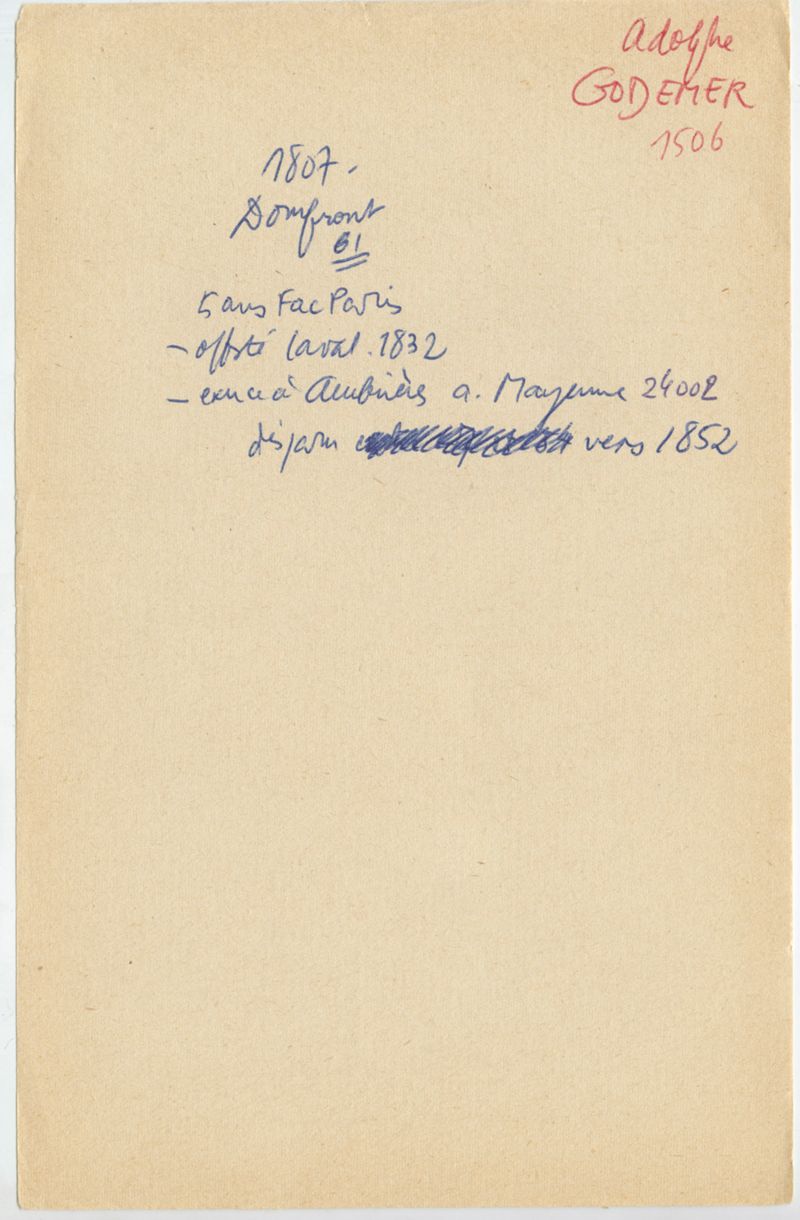 Adolphe
GODEMER
1506
1807.
Domfront
61
5 ans Fac Paris
- offsté Laval. 1832
- exerce à Ambrières a. Mayenne 24002
disparu vers 1852